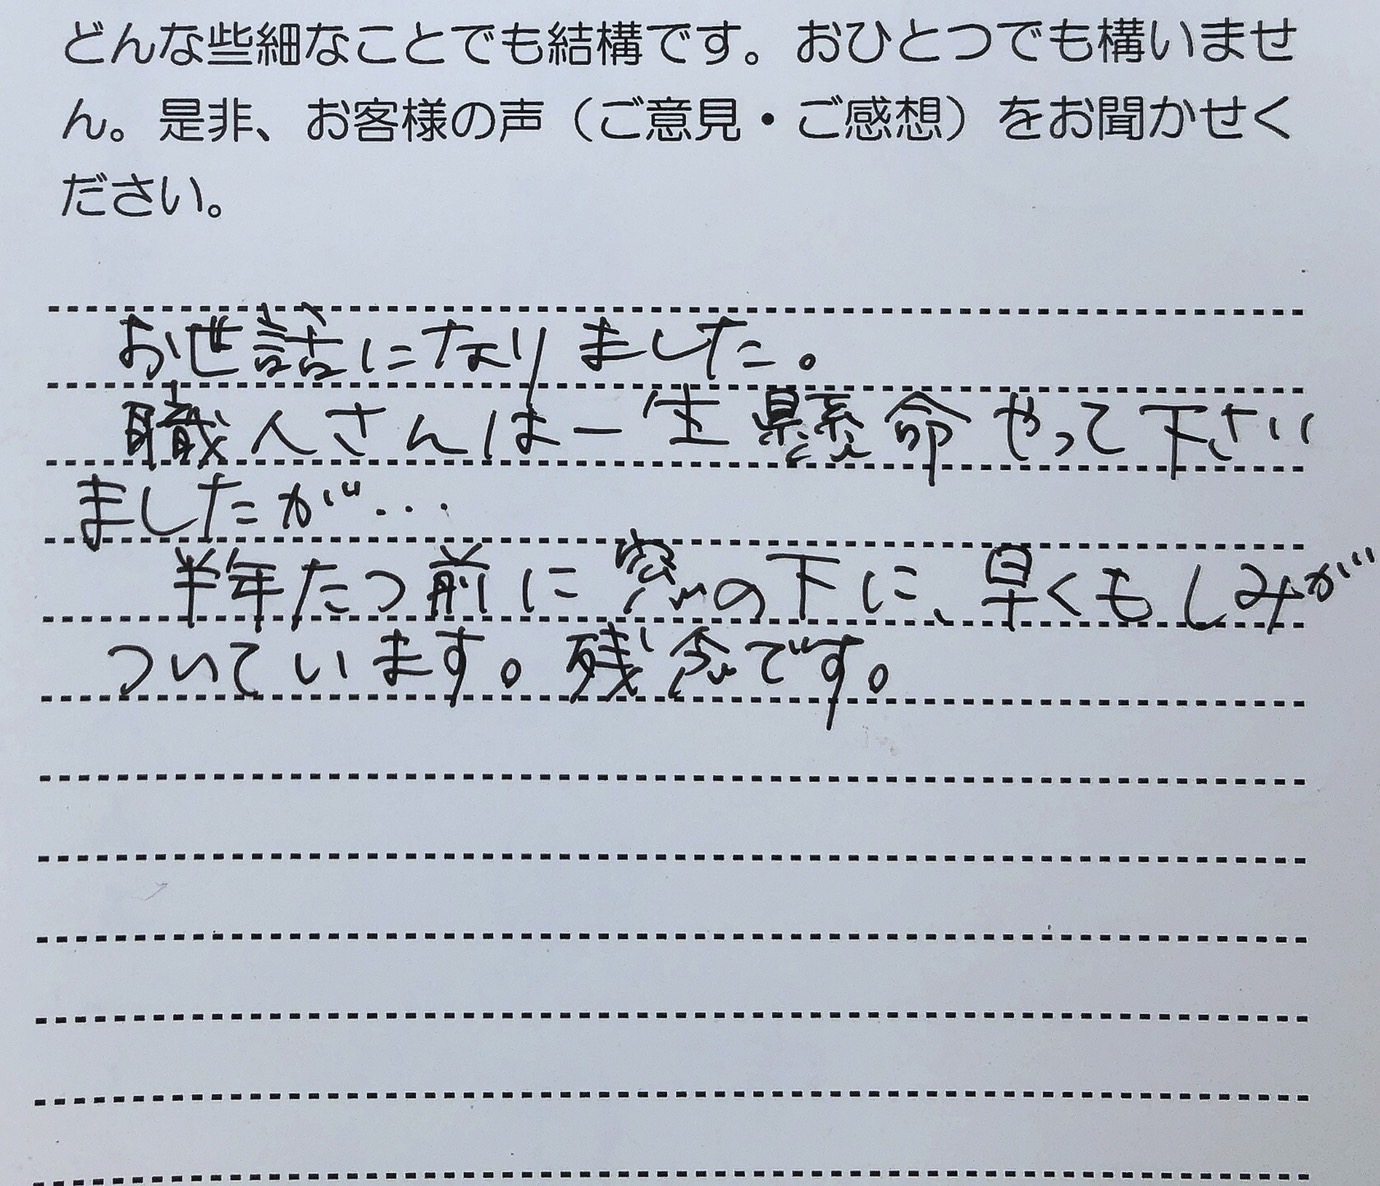 どんな些細なことでも結構です。おひとつでも構いませ
ん。是非、お客様の声（ご意見・ご感想）をお聞かせく
ださい。
お世話になりました。
職人さんは一生懸命やって下さい
ましたが…
半年たつ前に窓の下に、早くもしみが
ついています。残念です。